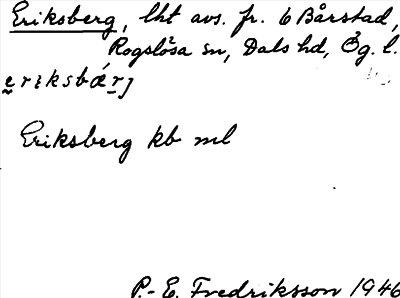 Eriksberg, lht avs. fr. 6 Bårstad,
Rogslösa sn, Dals hd, Ög. l.
Eriksberg kb ml
P.-E. Fredriksson 1946